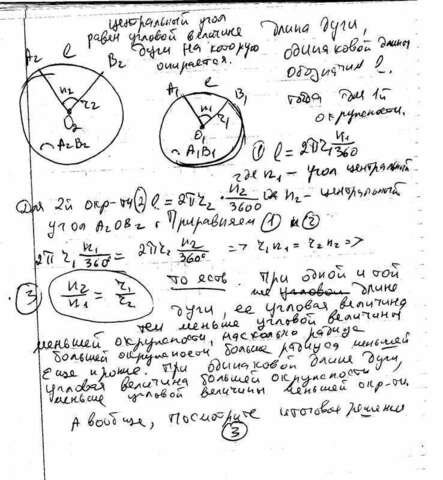 центральный угол
равен угловой величине
дуги на которую
опирается.
длина дуги,
одинаковой длины
обозначим l.
тогда для 1й
окружности.
A2 l B2
n2 r2
O2
◠A2B2
A1 l B1
n1 r1
O1
◠A1B1
① l = 2πr1 n1/360
где n1 - угол центральный
Для 2й окр-ти ② l = 2πr2 · n2/360° где n2 - центральный
угол A2OB2. Приравняем ① и ②
2πr1 n1/360° = 2πr2 n2/360° => r1n1 = r2n2 =>
③ n2/n1 = r1/r2 то есть. При одной и той
же угловой длине
дуги, ее угловая величина
тем меньше угловой величины
меньшей окружности, насколько радиус
большей окружности больше радиуса меньшей
Еще проще. При одинаковой длине дуги,
угловая величина большей окружности,
меньше угловой величины меньшей окр-ти
А вообще, посмотрите итоговое решение
③